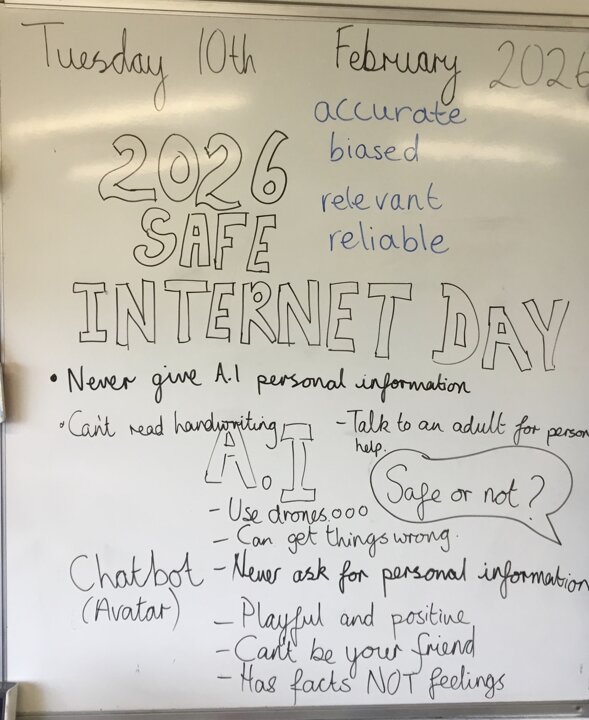 Tuesday 10th February 2026
accurate
biased
relevant
reliable
2026
SAFE
INTERNET DAY
• Never give A.I personal information
• Can't read handwriting
- Talk to an adult for person
help.
A.I
Safe or not?
- Use drones.ooo
- Can get things wrong.
Chatbot
(Avatar)
- Never ask for personal information
- Playful and positive
- Can't be your friend
- Has facts NOT feelings